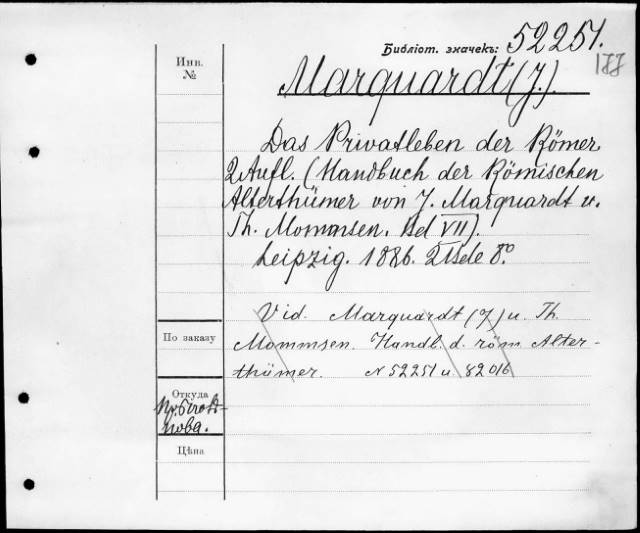 Библіот. значекъ: 52251.
177
Инв.
№
Marquardt (J.).
Das Privatleben der Römer
2 Aufl. (Handbuch der Römischen
Alterthümer von J. Marquardt u.
Th. Mommsen. Bd VII).
Leipzig. 1886. 2 Bde 8º
Vid. Marquardt (J) u. Th.
По заказу
Mommsen. Handb. d. röm. Alter-
thümer. N 52251 u. 82016
Откуда
Цѣна